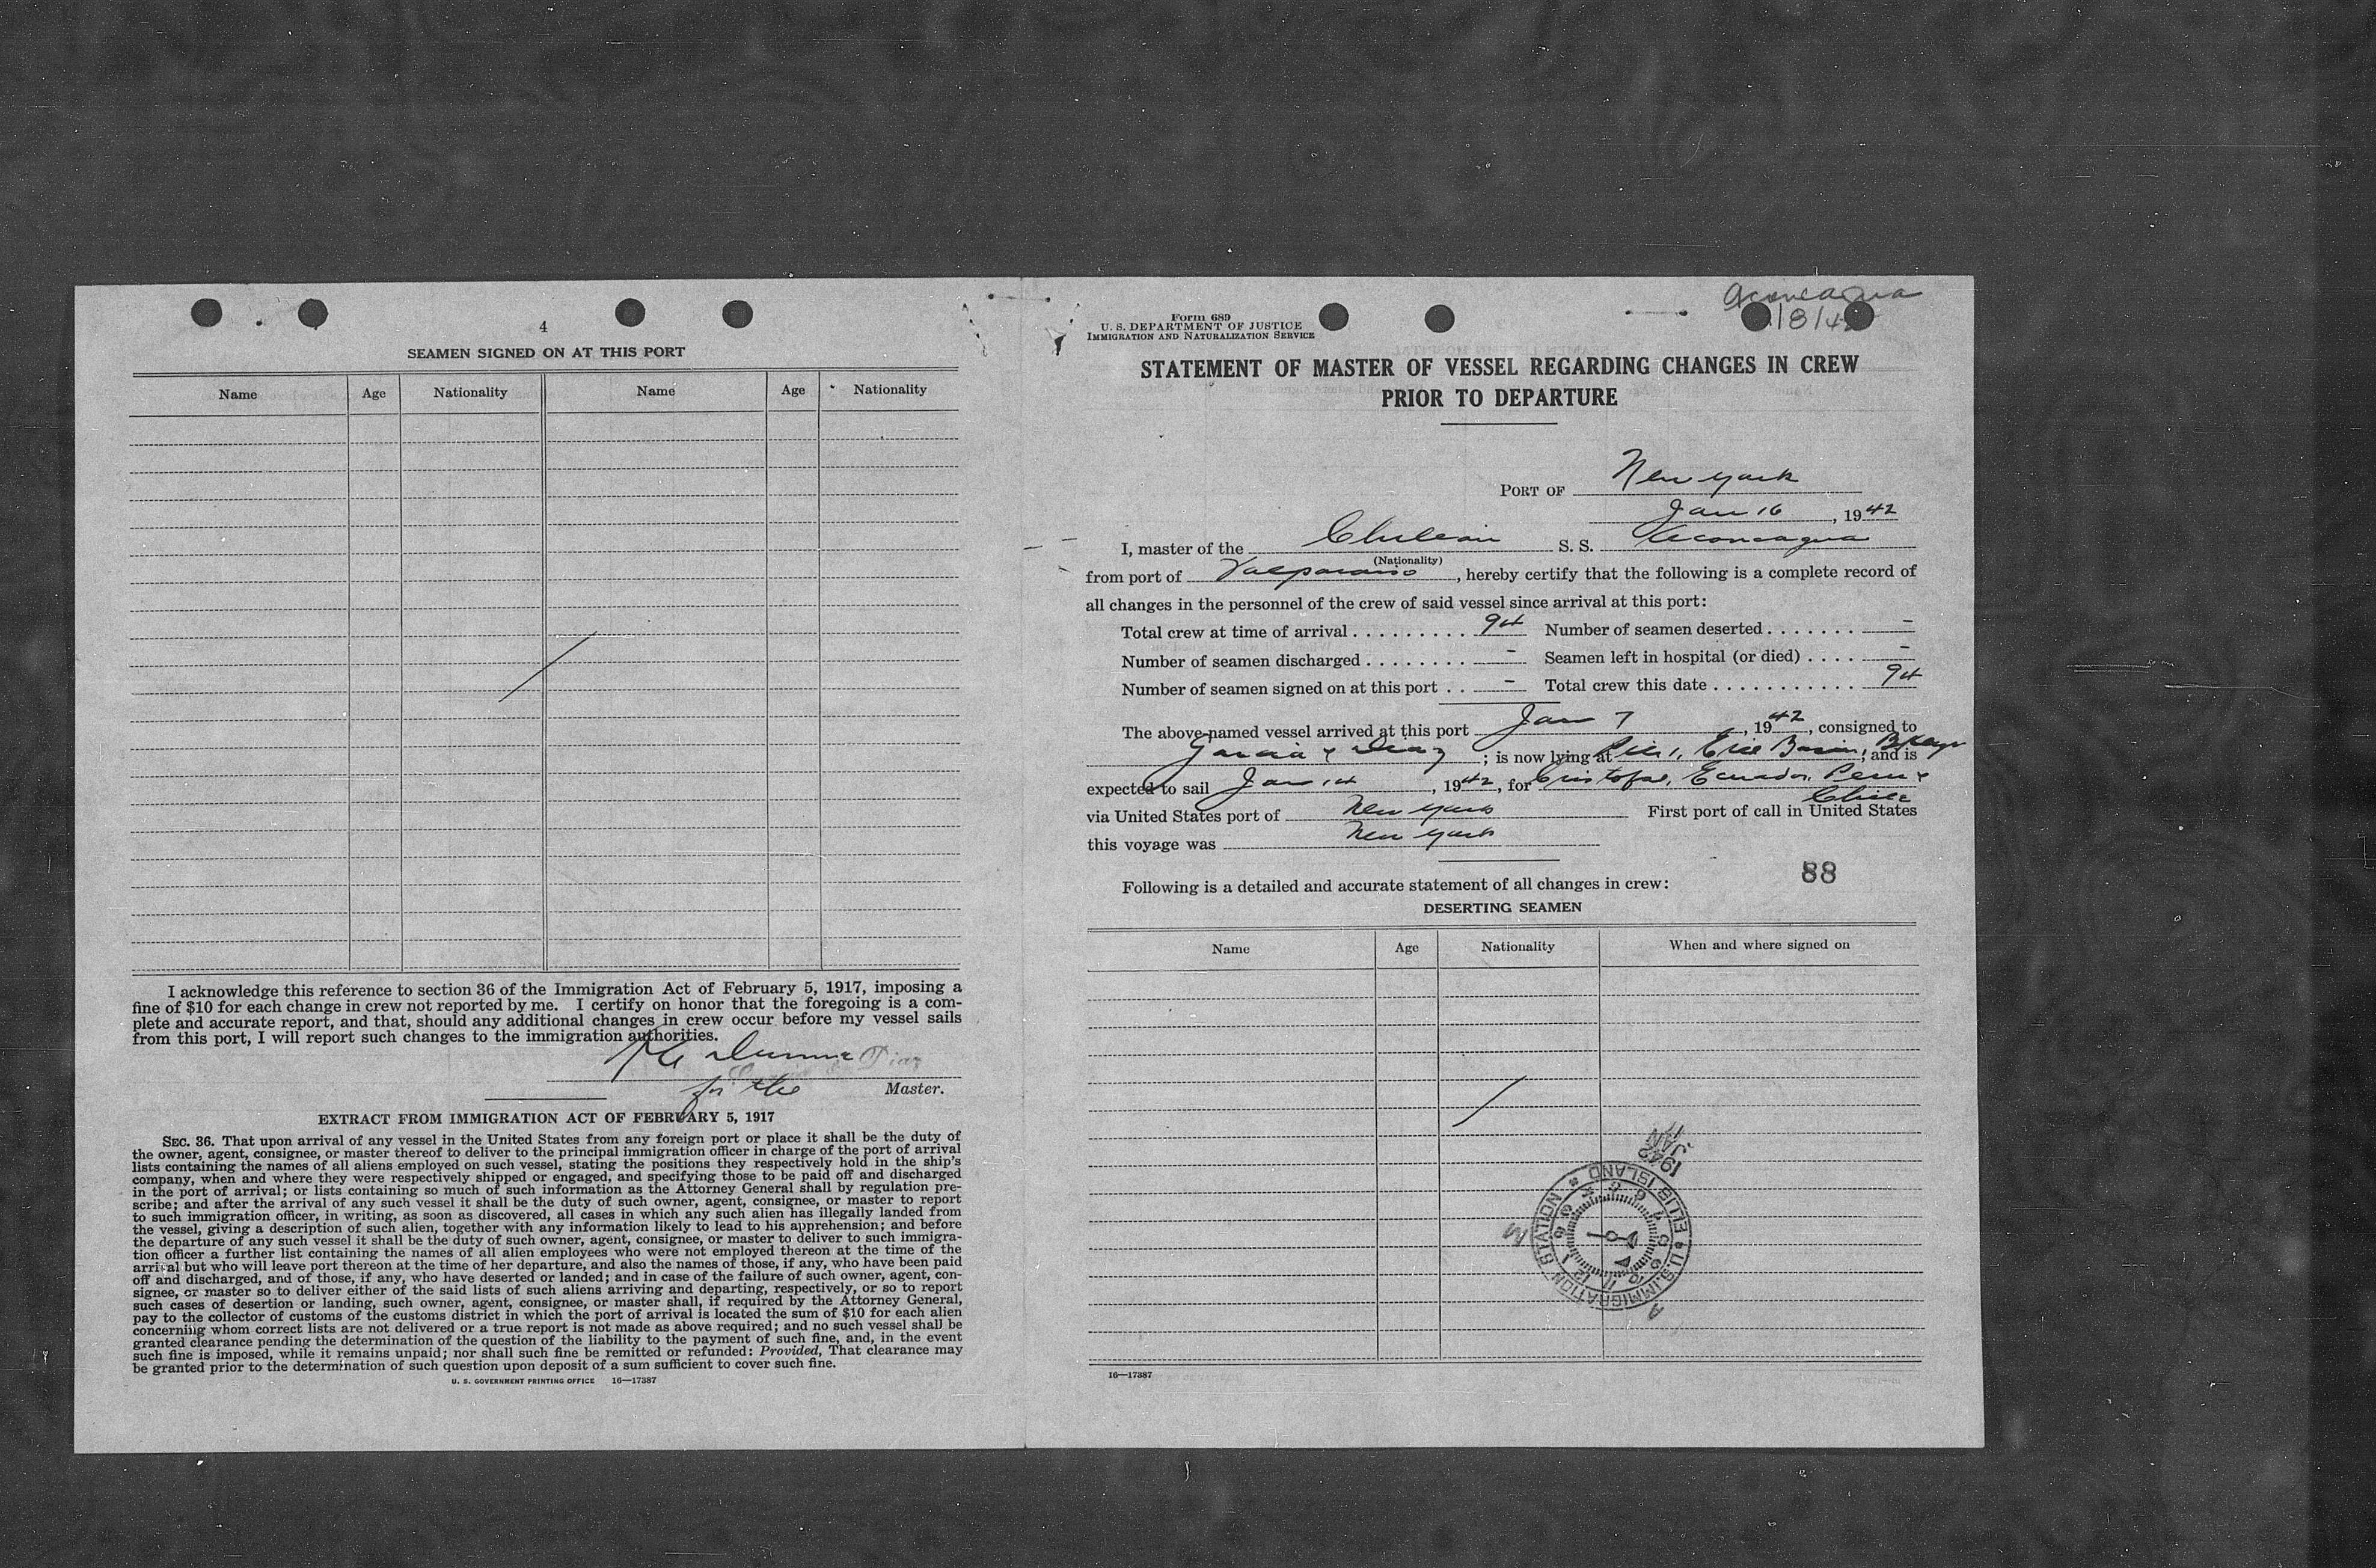 4
SEAMEN SIGNED ON AT THIS PORT
Name Age Nationality Name Age Nationality
I acknowledge this reference to section 36 of the Immigration Act of February 5, 1917, imposing a
fine of $10 for each change in crew not reported by me. I certify on honor that the foregoing is a com-
plete and accurate report, and that, should any additional changes in crew occur before my vessel sails
from this port, I will report such changes to the immigration authorities.
for the Master.
EXTRACT FROM IMMIGRATION ACT OF FEBRUARY 5, 1917
SEC. 36. That upon arrival of any vessel in the United States from any foreign port or place it shall be the duty of
the owner, agent, consignee, or master thereof to deliver to the principal immigration officer in charge of the port of arrival
lists containing the names of all aliens employed on such vessel, stating the positions they respectively hold in the ship's
company, when and where they were respectively shipped or engaged, and specifying those to be paid off and discharged
in the port of arrival; or lists containing so much of such information as the Attorney General shall by regulation pre-
scribe; and after the arrival of any such vessel it shall be the duty of such owner, agent, consignee, or master to report
to such immigration officer, in writing, as soon as discovered, all cases in which any such alien has illegally landed from
the vessel, giving a description of such alien, together with any information likely to lead to his apprehension; and before
the departure of any such vessel it shall be the duty of such owner, agent, consignee, or master to deliver to such immigra-
tion officer a further list containing the names of all alien employees who were not employed thereon at the time of the
arrival but who will leave port thereon at the time of her departure, and also the names of those, if any, who have been paid
off and discharged, and of those, if any, who have deserted or landed; and in case of the failure of such owner, agent, con-
signee, or master so to deliver either of the said lists of such aliens arriving and departing, respectively, or so to report
such cases of desertion or landing, such owner, agent, consignee, or master shall, if required by the Attorney General,
pay to the collector of customs of the customs district in which the port of arrival is located the sum of $10 for each alien
concerning whom correct lists are not delivered or a true report is not made as above required; and no such vessel shall be
granted clearance pending the determination of the question of the liability to the payment of such fine, and, in the event
such fine is imposed, while it remains unpaid; nor shall such fine be remitted or refunded: Provided, That clearance may
be granted prior to the determination of such question upon deposit of a sum sufficient to cover such fine.
U. S. GOVERNMENT PRINTING OFFICE 16—17387
Aconcagua
Form 689
U. S. DEPARTMENT OF JUSTICE
IMMIGRATION AND NATURALIZATION SERVICE
STATEMENT OF MASTER OF VESSEL REGARDING CHANGES IN CREW
PRIOR TO DEPARTURE
PORT OF New York
Jan 16, 1942
I, master of the Chilean S. S. Aconcagua
(Nationality)
from port of Valparaiso, hereby certify that the following is a complete record of
all changes in the personnel of the crew of said vessel since arrival at this port:
Total crew at time of arrival . . . . . . . . . . 94 Number of seamen deserted . . . . . . . -
Number of seamen discharged . . . . . . . . - Seamen left in hospital (or died) . . . . -
Number of seamen signed on at this port . . - Total crew this date . . . . . . . . . . . . 94
The above-named vessel arrived at this port Jan 7, 1942, consigned to
Garcia & Diaz; is now lying at Pier 1, Erie Basin, Bklyn; and is
expected to sail Jan 14, 1942, for Cristobal, Ecuador, Peru &
Chile
via United States port of New York First port of call in United States
this voyage was New York
88
Following is a detailed and accurate statement of all changes in crew:
DESERTING SEAMEN
Name Age Nationality When and where signed on
JAN
1942
U.S. IMMIGRATION STATION * ELLIS ISLAND
16—17387